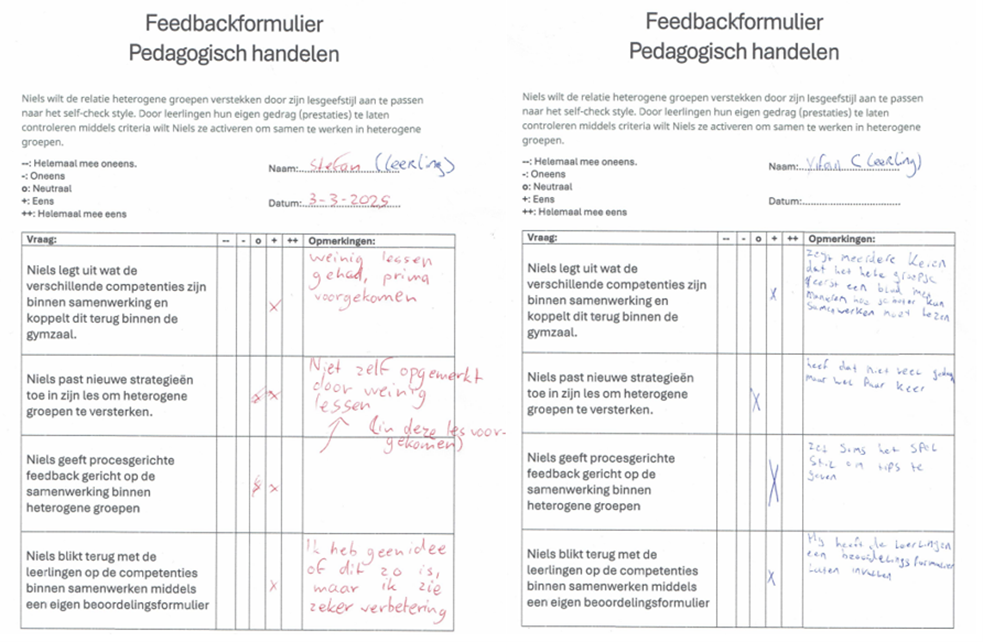 Feedbackformulier
Pedagogisch handelen
Niels wilt de relatie heterogene groepen verstekken door zijn lesgeefstijl aan te passen
naar het self-check style. Door leerlingen hun eigen gedrag (prestaties) te laten
controleren middels criteria wilt Niels ze activeren om samen te werken in heterogene
groepen.
--: Helemaal mee oneens.
-: Oneens
o: Neutraal
+: Eens
++: Helemaal mee eens
Naam: Stefan (leerling)
Datum: 3-3-2025
Vraag: -- - o + ++ Opmerkingen:
Niels legt uit wat de
verschillende competenties zijn
binnen samenwerking en
koppelt dit terug binnen de
gymzaal.
x
weinig lessen
gehad, prima
voorgekomen
Niels past nieuwe strategieën
toe in zijn les om heterogene
groepen te versterken.
x
Niet zelf opgemerkt
door weinig
lessen
(in deze les voor-
gekomen)
Niels geeft procesgerichte
feedback gericht op de
samenwerking binnen
heterogene groepen
x
Niels blikt terug met de
leerlingen op de competenties
binnen samenwerken middels
een eigen beoordelingsformulier
x
Ik heb geen idee
of dit zo is,
maar ik zie
zeker verbetering
Feedbackformulier
Pedagogisch handelen
Niels wilt de relatie heterogene groepen verstekken door zijn lesgeefstijl aan te passen
naar het self-check style. Door leerlingen hun eigen gedrag (prestaties) te laten
controleren middels criteria wilt Niels ze activeren om samen te werken in heterogene
groepen.
--: Helemaal mee oneens.
-: Oneens
o: Neutraal
+: Eens
++: Helemaal mee eens
Naam: (leerling)
Datum:
Vraag: -- - o + ++ Opmerkingen:
Niels legt uit wat de
verschillende competenties zijn
binnen samenwerking en
koppelt dit terug binnen de
gymzaal.
x
meerdere keren
dat het hele groepje
eerst een blad met
manieren hoe je beter kun
samenwerken moet lezen
Niels past nieuwe strategieën
toe in zijn les om heterogene
groepen te versterken.
x
heef dat niet veel
maar wel paar keer
Niels geeft procesgerichte
feedback gericht op de
samenwerking binnen
heterogene groepen
x
soms het spel
stil om tips te
geven
Niels blikt terug met de
leerlingen op de competenties
binnen samenwerken middels
een eigen beoordelingsformulier
x
Hij heeft de leerlingen
een beoordelingsformulier
laten invullen